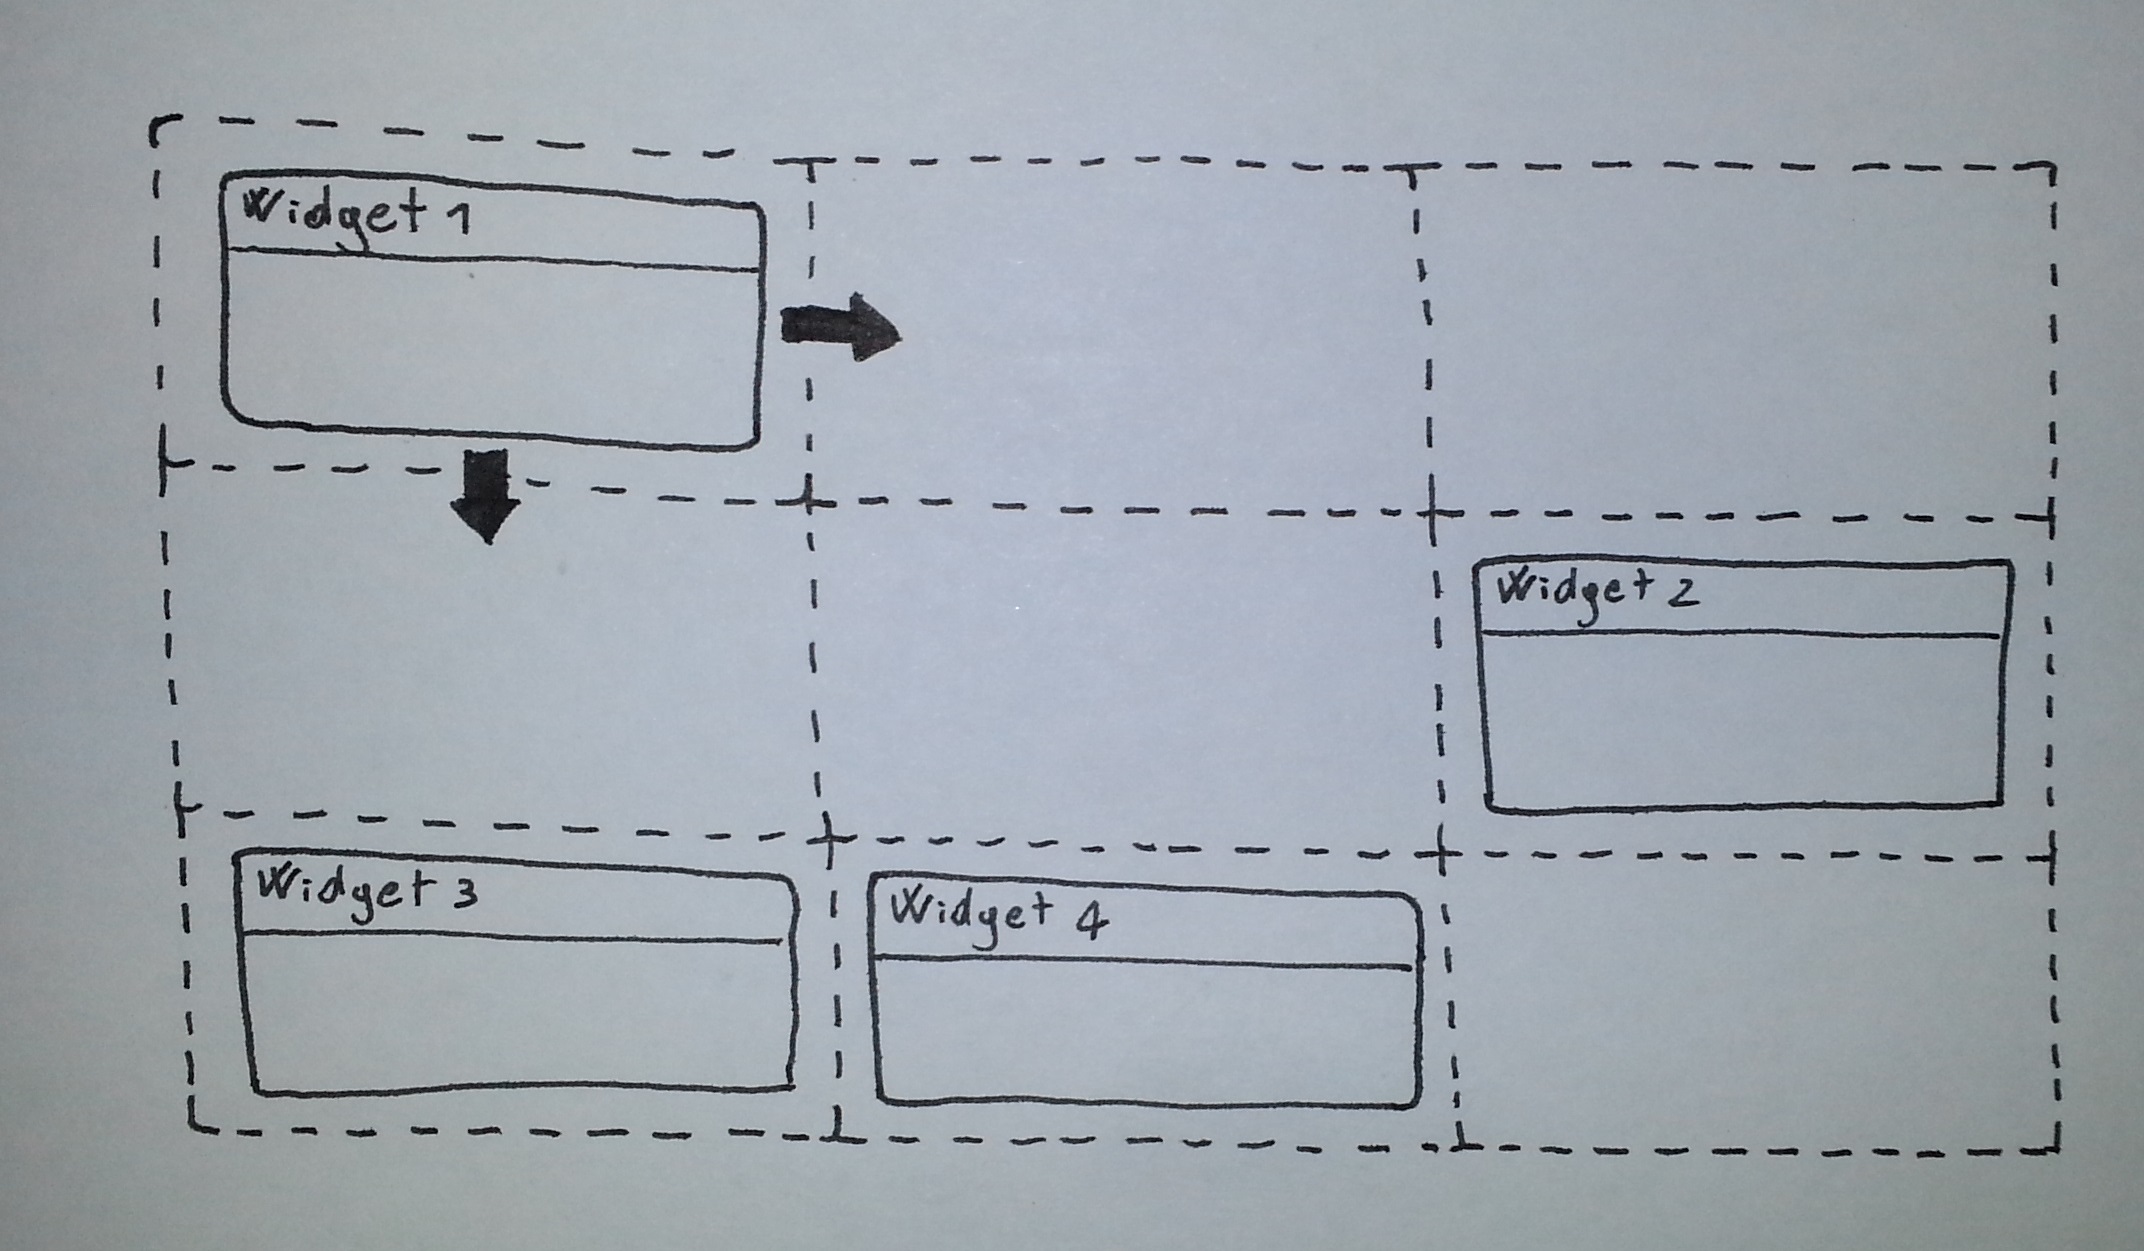 Widget 1
Widget 2
Widget 3
Widget 4